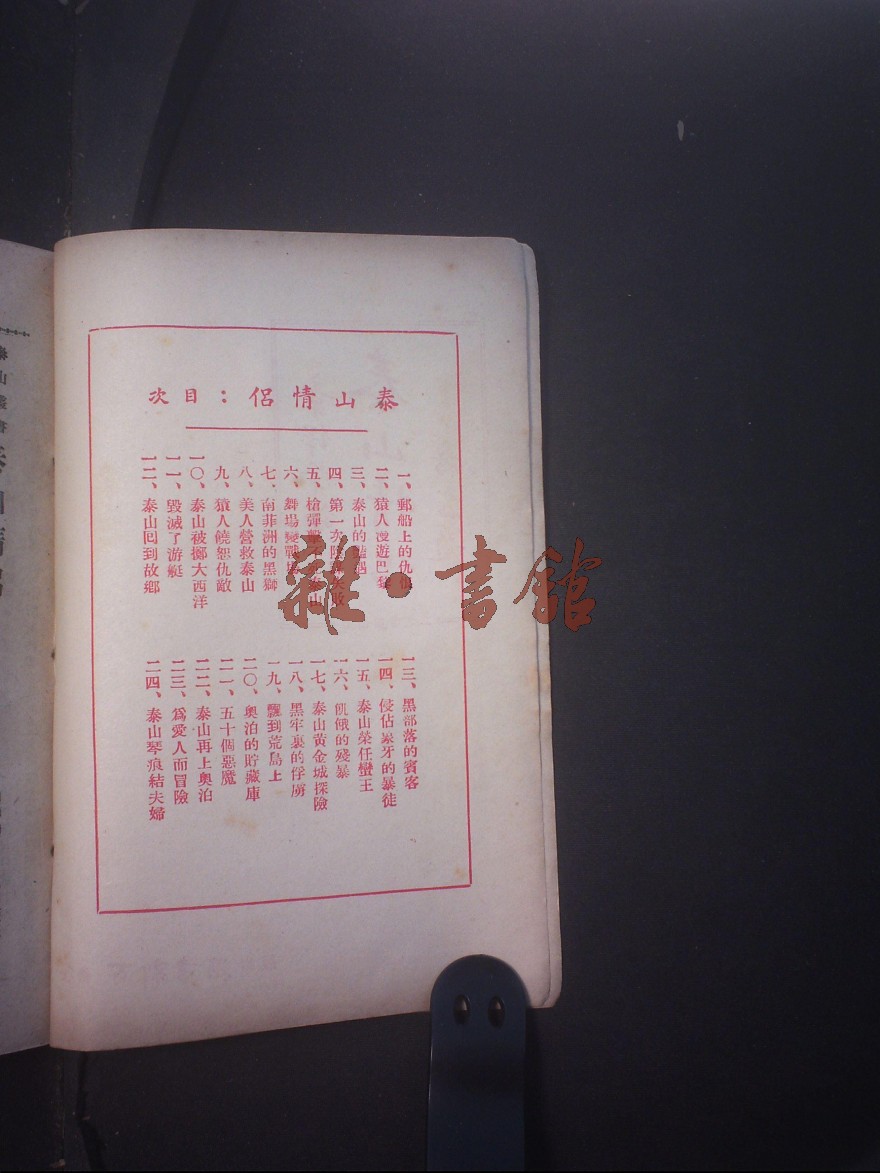 泰山情侶：目次
一、郵船上的仇恨
二、猿人漫遊巴黎
三、泰山的豔遇
四、第一次陰謀失敗
五、槍彈擊泰山
六、舞場變戰場
七、南菲洲的黑獅
八、美人營救泰山
九、猿人饒恕仇敵
一〇、泰山被擲大西洋
一一、毀滅了游艇
一二、泰山回到故鄉
一三、黑部落的賓客
一四、侵佔象牙的暴徒
一五、泰山榮任蠻王
一六、飢餓的殘暴
一七、泰山黃金城探險
一八、黑牢裏的俘虜
一九、飄到荒島上
二〇、奧泊的貯藏庫
二一、五十個惡魔
二二、泰山再上奧泊
二三、爲愛人而冒險
二四、泰山琴痕結夫婦
雜·書館